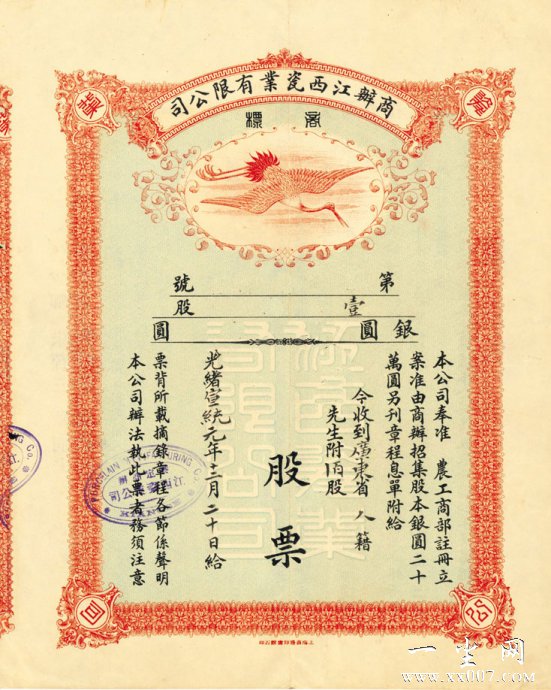 商辦江西瓷業有限公司
商標
第
號
壹
股
銀
圓
圓
本公司奉准 農工商部註冊立
案准由商辦招集股本銀圓二十
萬圓另刊章程息單附給
今收到廣東省 人籍
先生附 股
股票
光緒宣統元年十二月二十日給
票背所載摘錄章程各節係聲明
本公司辦法執此票者務須注意
一尘网
www.xx007.com